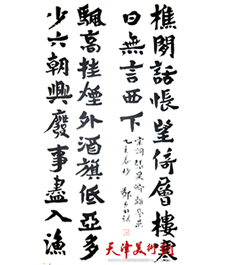 樵閑話悵望倚層樓寒
日無言西下
颿高挂煙外酒旗低亞多
少六朝興廢事盡入漁
天津美術網